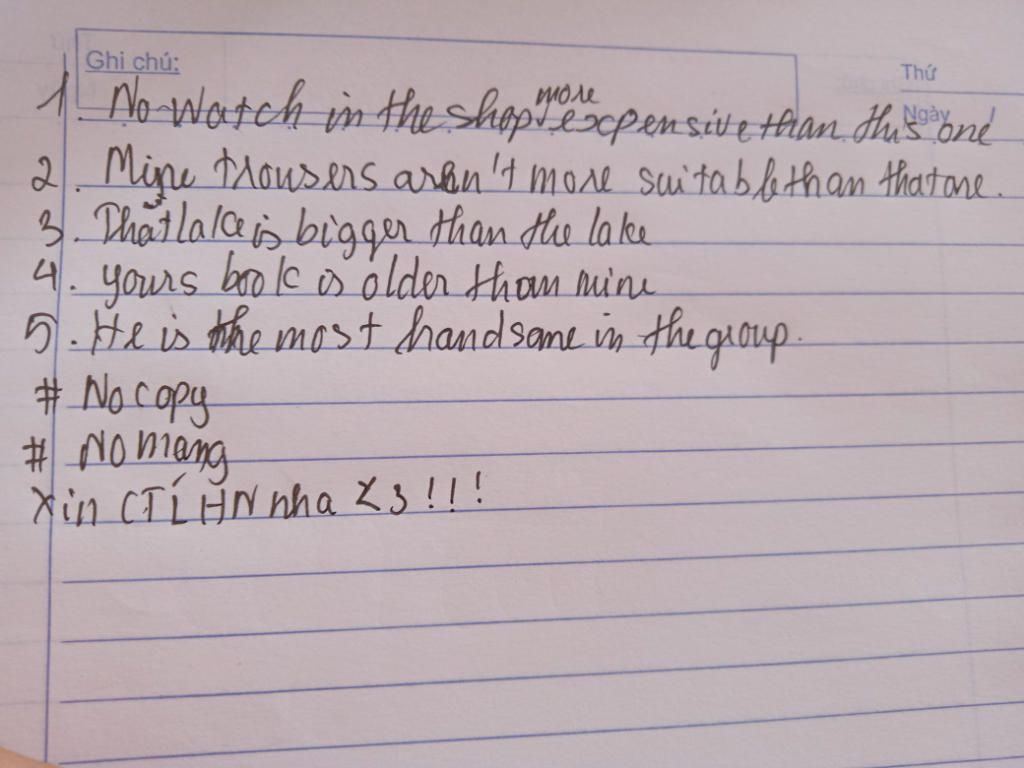 Ghi chú:
Thứ
Ngày
1. No watch in the shop more expensive than this one
2. Mine trousers aren't more suitable than that one.
3. That lake is bigger than the lake
4. yours book is older than mine
5. He is the most handsome in the group.
# No copy
# No mạng
Xin CTLHN nha <3 !!!